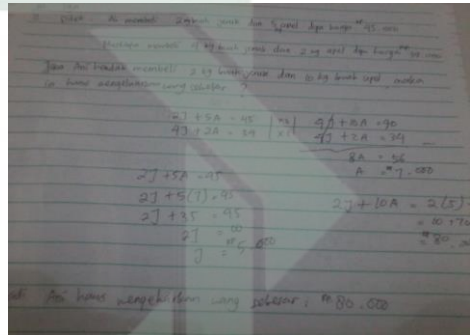 Ani membeli 2 kg buah jeruk dan 5 apel dgn harga Rp 45.000
membeli 4 kg buah jeruk dan 2 kg apel dgn harga Rp 34.000
Jika Ani hendak membeli 2 kg buah jeruk dan 10 kg buah apel, maka
ia harus mengeluarkan uang sebesar ?
2J + 5A = 45 | x2 | 4J + 10A = 90
4J + 2A = 34 | x1 | 4J + 2A = 34
8A = 56
A = Rp 7.000
2J + 5A = 45
2J + 5(7) = 45
2J + 35 = 45
2J = 10
J = Rp 5.000
2J + 10A = 2(5)
= 10 + 70
= Rp 80.
Ani harus mengeluarkan uang sebesar : Rp 80.000